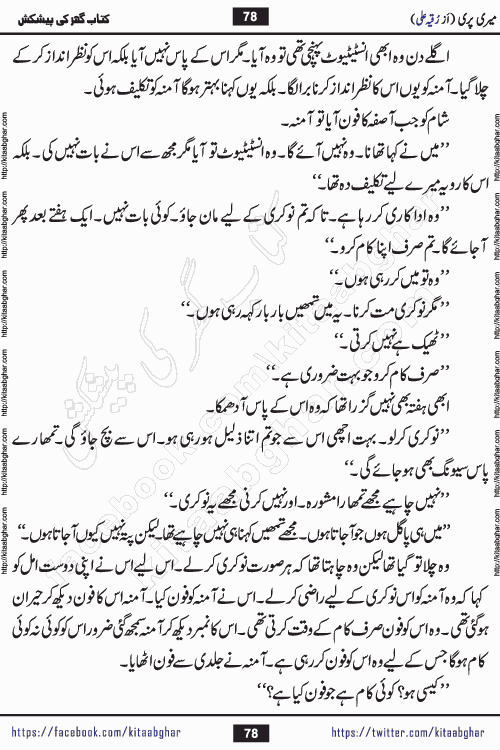 کتاب گھر کی پیشکش
78
میری پری (از رقیہ علی)
اگلے دن وہ ابھی انسٹیٹیوٹ پہنچی تھی تو وہ آیا۔ مگر اس کے پاس نہیں آیا بلکہ اس کو نظر انداز کر کے
چلا گیا۔ آمنہ کو یوں اس کا نظر انداز کرنا برا لگا۔ بلکہ یوں کہنا بہتر ہوگا آمنہ کو تکلیف ہوئی۔
شام کو جب آصفہ کا فون آیا تو آمنہ۔
’’میں نے کہا تھا نا۔ وہ نہیں آئے گا۔ وہ انسٹیٹیوٹ تو آیا مگر مجھ سے اس نے بات نہیں کی۔ بلکہ
اس کا رویہ میرے لیے تکلیف دہ تھا۔‘‘
’’وہ اداکاری کر رہا ہے۔ تاکہ تم نوکری کے لیے مان جاؤ۔ کوئی بات نہیں۔ ایک ہفتے بعد پھر
آجائے گا۔ تم صرف اپنا کام کرو۔‘‘
’’وہ تو میں کر رہی ہوں۔‘‘
’’مگر نوکری مت کرنا۔ یہ میں تمھیں بار بار کہہ رہی ہوں۔‘‘
’’ٹھیک ہے نہیں کرتی۔‘‘
’’صرف کام کرو جو بہت ضروری ہے۔‘‘
ابھی ہفتہ بھی نہیں گزرا تھا کہ وہ اس کے پاس آدھمکا۔
’’نوکری کرلو۔ بہت اچھی اس سے جو تم اتنا ذلیل ہو رہی ہو۔ اس سے بچ جاؤ گی۔ تمھارے
پاس سیونگ بھی ہو جائے گی۔‘‘
’’نہیں چاہیے مجھے تمھارا مشورہ۔ اور نہیں کرنی مجھے یہ نوکری۔‘‘
’’میں ہی پاگل ہوں جو آجاتا ہوں۔ مجھے تمھیں کہنا ہی نہیں چاہیے تھا لیکن پتہ نہیں کیوں آجاتا ہوں۔‘‘
وہ چلا تو گیا تھا لیکن وہ چاہتا تھا کہ ہر صورت نوکری کر لے۔ اس لیے اس نے اپنی دوست امل کو
کہا کہ وہ آمنہ کو اس نوکری کے لیے راضی کر لے۔ اس نے آمنہ کو فون کیا۔ آمنہ اس کا فون دیکھ کر حیران
ہوگئی تھی۔ وہ اس کو فون صرف کام کے وقت کرتی تھی۔ اس کا نمبر دیکھ کر آمنہ سمجھ گئی ضرور اس کو کوئی نہ کوئی
کام ہوگا جس کے لیے وہ اس کو فون کر رہی ہے۔ آمنہ نے جلدی سے فون اٹھایا۔
’’کیسی ہو؟ کوئی کام ہے جو فون کیا ہے؟‘‘
http://kitaabghar.com http://kitaabghar.com http://kitaabghar.com http://kitaabghar.com http://kitaabghar.com http://kitaabghar.com
http://kitaabghar.com http://kitaabghar.com http://kitaabghar.com http://kitaabghar.com http://kitaabghar.com http://kitaabghar.com
کتاب گھر کی پیشکش
facebook.com/kitaabghar
kitaabghar.com
https://facebook.com/kitaabghar
78
https://twitter.com/kitaabghar